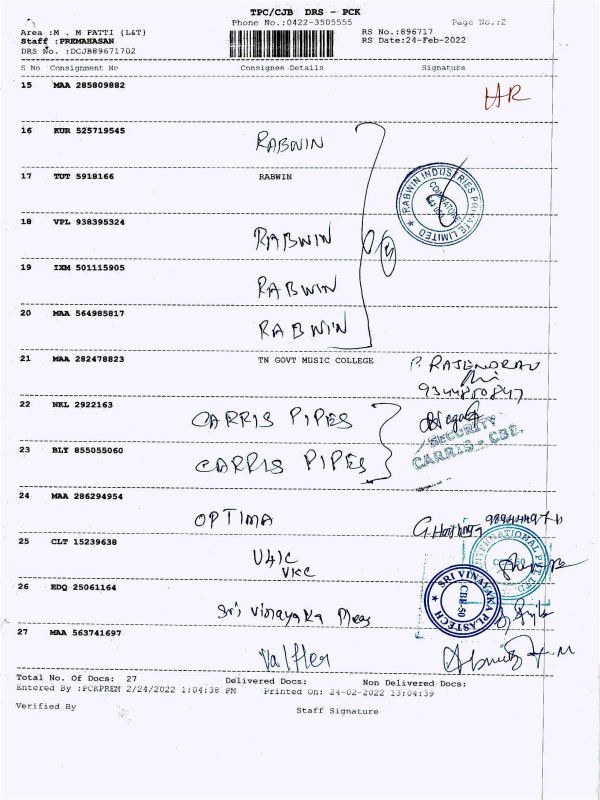 TPC/CJB DRS - PCK
Phone No.:0422-3505555
Page No.:2
Area :M . M PATTI {L&T}
RS No.:896717
Staff :PREMAHASAN
RS Date:24-Feb-2022
DRS No. :DCJB89671702
S No Consignment No Consignee Details Signature
15 MAA 285809882
HR
16 KUR 525719545
RABWIN
17 TUT 5918166 RABWIN
RABWIN INDUSTRIES PRIVATE LIMITED
COIMBATORE
18 VPL 938395324
RABWIN
19 IXM 501115905
RABWIN
20 MAA 564985817
RABWIN
21 MAA 282478823 TN GOVT MUSIC COLLEGE
P. RAJENDRAN
9344850847
22 NKL 2922163
CARRIS PIPES
SECURITY
CARRIS - CBE.
23 BLY 855055060
CARRIS PIPES
24 MAA 286294954
OPTIMA
25 CLT 15239638
VKC
INTERNATIONAL
26 EDQ 25061164
Sri Vinayaka
SRI VINAYAKA PLASTECH
CBE-50
27 MAA 563741697
Total No. Of Docs: 27 Delivered Docs: Non Delivered Docs:
Entered By :PCKPREM 2/24/2022 1:04:38 PM Printed On: 24-02-2022 13:04:39
Verified By Staff Signature